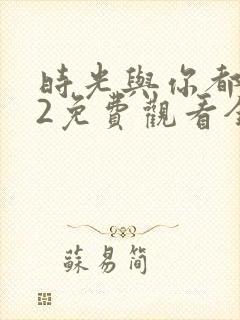 時光與你都
2免費觀看全
蘇易簡